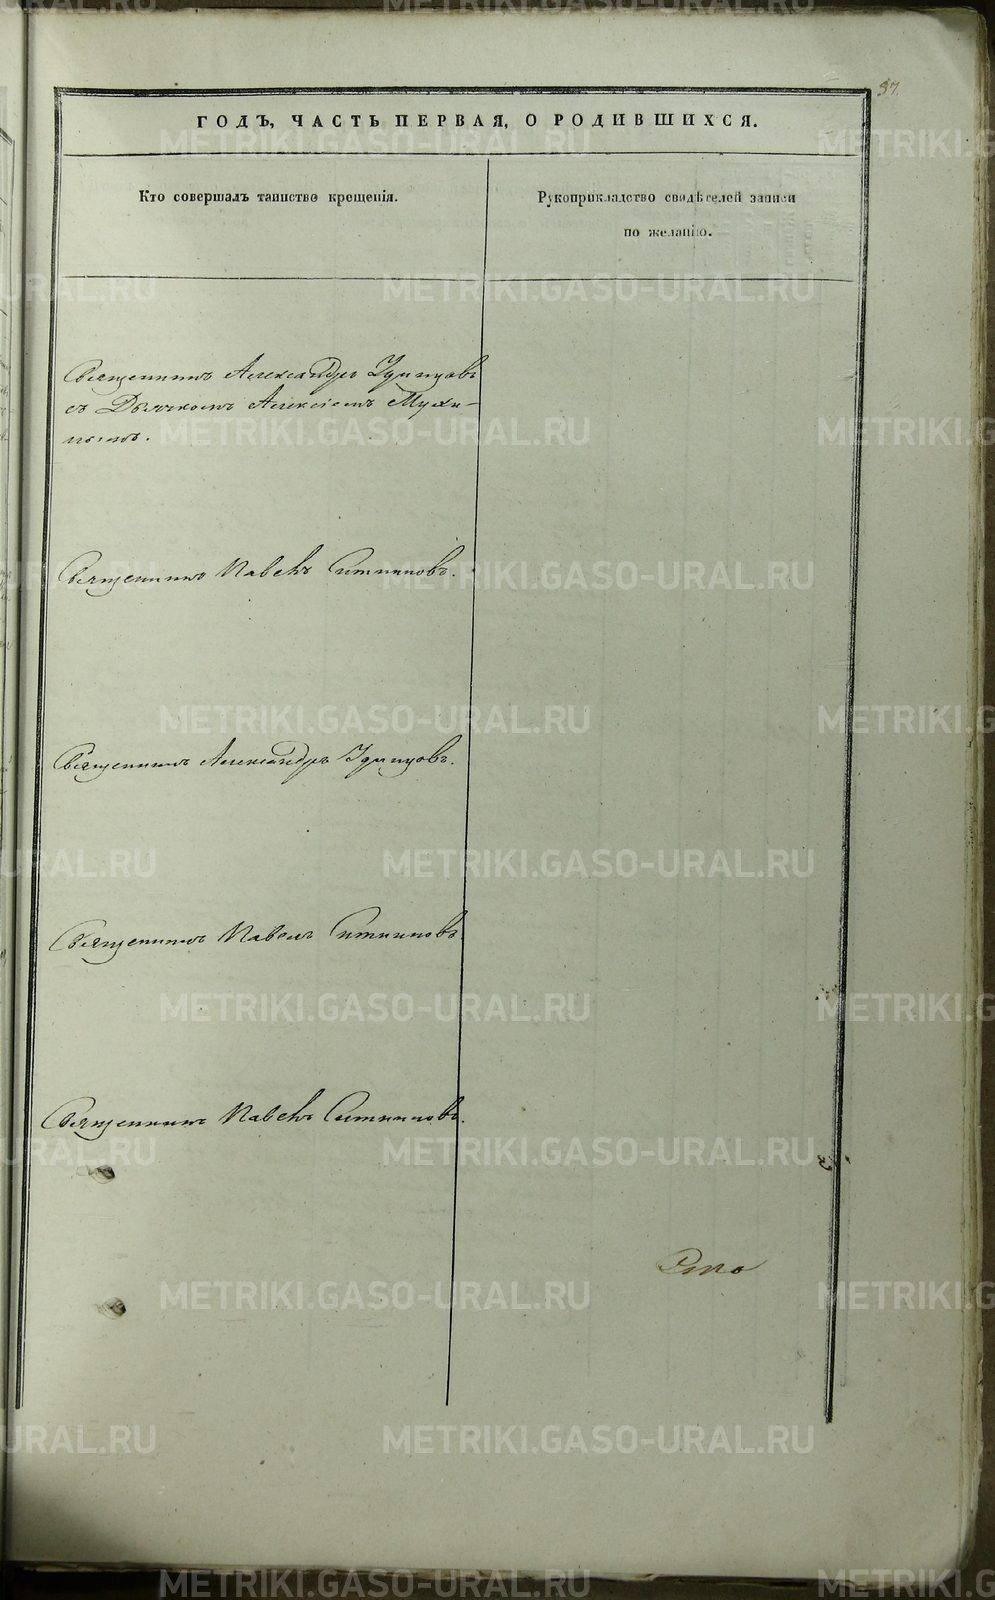 37.
ГОДЪ, ЧАСТЬ ПЕРВАЯ, О РОДИВШИХСЯ.
Кто совершалъ таинство крещенія.
Рукоприкладство свидѣтелей записи
по желанію.
Священникъ Александръ Удинцовъ
съ Дьячкомъ Алексіемъ Мухи-
нымъ.
Священникъ Павелъ Ситниковъ.
Священникъ Александръ Удинцовъ.
Священникъ Павелъ Ситниковъ.
Священникъ Павелъ Ситниковъ.
METRIKI.GASO-URAL.RU